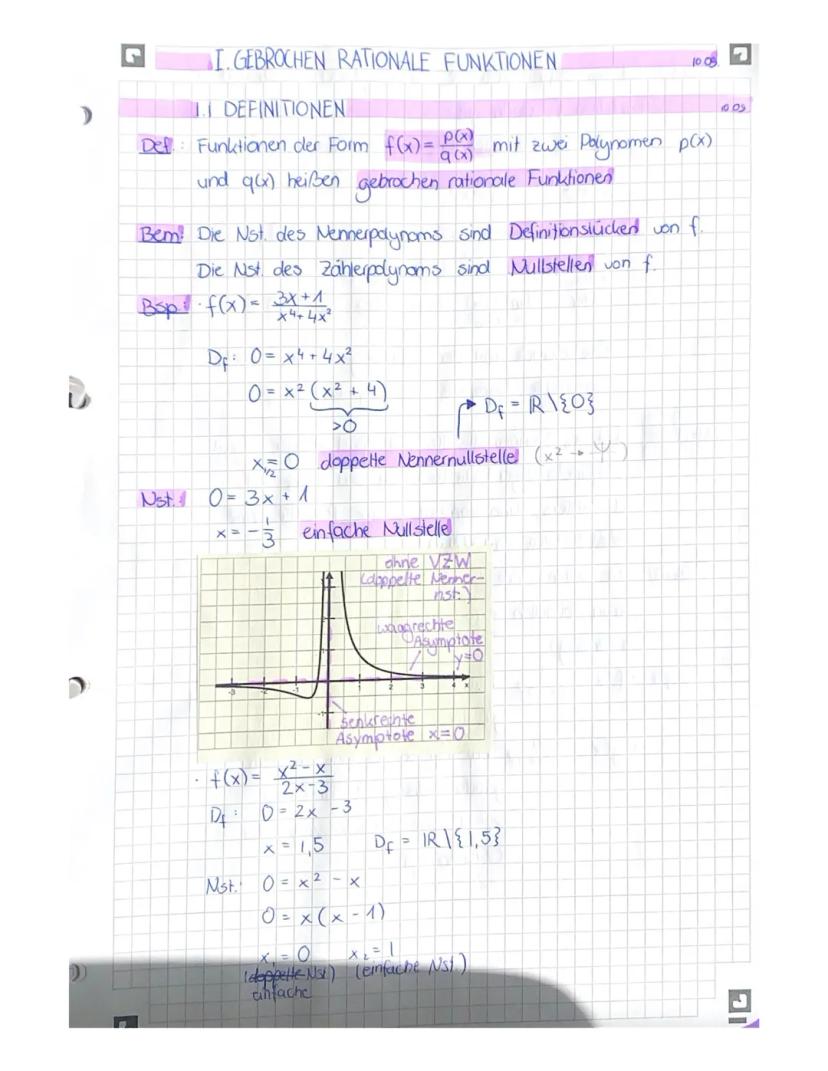 I. GEBROCHEN RATIONALE FUNKTIONEN 10.05
1.1 DEFINITIONEN 10.05
Def.: Funktionen der Form f(x) = p(x)/q(x) mit zwei Polynomen p(x)
und q(x) heißen gebrochen rationale Funktionen
Bem: Die Nst. des Nennerpolynoms sind Definitionslücken von f.
Die Nst. des Zählerpolynoms sind Nullstellen von f.
Bsp: · f(x) = 3x+1 / x⁴+4x²
Df: 0 = x⁴ + 4x²
0 = x² (x² + 4)
>0
Df = ℝ\{0}
x1/2 = 0 doppelte Nennernullstelle (x² →
Nst.: 0 = 3x + 1
x = -1/3 einfache Nullstelle
ohne VZW
(doppelte Nenner-
nst.)
waagrechte
Asymptote
y=0
-3 -2 -1 1 2 3 4 x
-1
senkrechte
Asymptote x=0
· f(x) = x²-x / 2x-3
Df: 0 = 2x - 3
x = 1,5 Df = ℝ\{1,5}
Nst.: 0 = x² - x
0 = x(x - 1)
x1 = 0 x2 = 1
(doppelte Nst) (einfache Nst.)
einfache